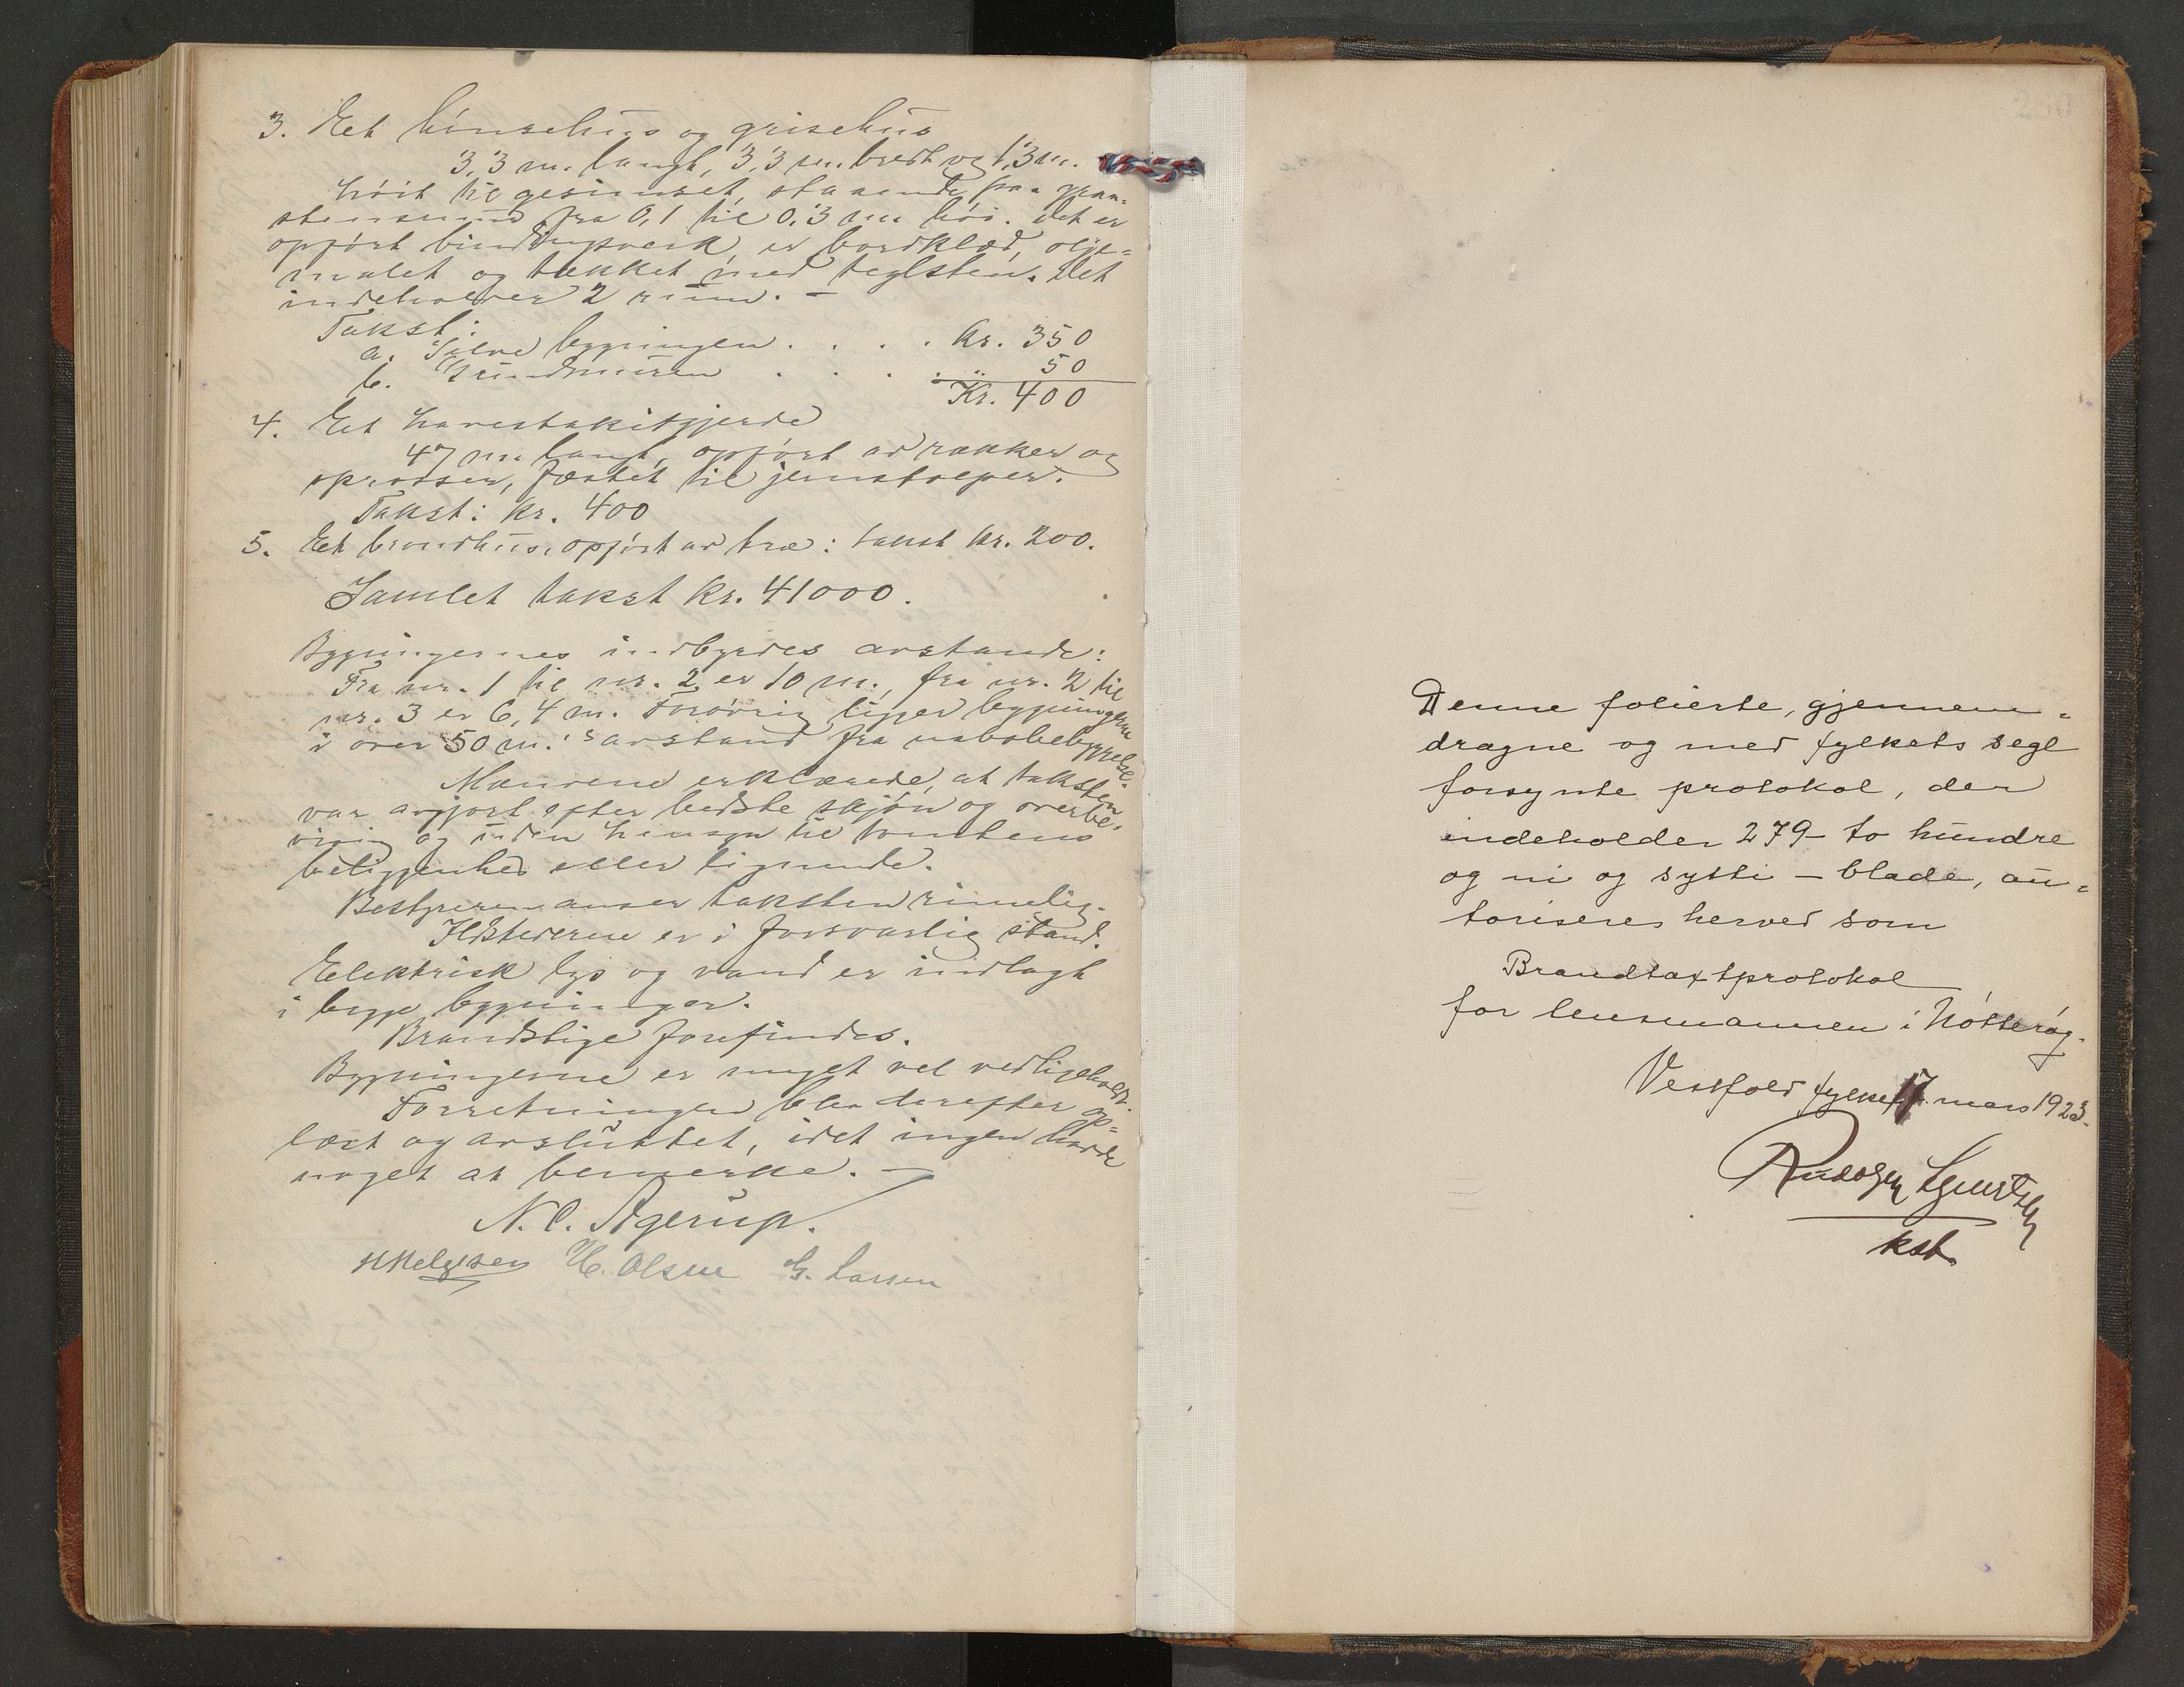 3. Et hønsehus og grisehus
3,3 m. langt, 3,3 m. bredt og 1,3 m.
høit til gesimset, staaende paa graa-
stensmur fra 0,1 til 0,3 m høi. Det er
opført bindingsverk, er bordklæd, olje-
malet og tækket med teglsten. Det
indeholder 2 rum. —
Takst:
a. Selve bygningen . . . . kr. 350
b. Grundmuren . . . . „ 50
Kr. 400
4. Et havestakitgjerde
47 m. langt, opført av rækker og
sprosser, fæstet til jernstolper.
Takst: kr. 400
5. Et brøndhus, opført av træ: takst kr. 200.
Samlet takst kr. 41000.
Bygningernes indbyrdes avstande:
Fra nr. 1 til nr. 2 er 10 m., fra nr. 2 til
nr. 3 er 6,4 m. Forøvrig ligger bygningerne
i over 50 m.'s avstand fra nabobebyggelse.
Mændene erklærede, at taksten
var avgjort efter bedste skjøn og overbe-
visning og uden hensyn til tomtens
beliggenhed eller lignende.
Bestyreren anser taksten rimelig.
Ildstederne er i forsvarlig stand.
Elektrisk lys og vand er indlagt
i begge bygninger.
Brandstige forefindes.
Bygningerne er meget vel vedligeholdt.
Forretningen blev derefter op-
læst og avsluttet, idet ingen havde
noget at bemerke. —
N. C. Agerup.
H. Olsen G. Larsen
Denne folierte, gjennem-
dragne og med fylkets segl
forsynte protokol, der
indeholder 279 - to hundre
og ni og sytti - blade, au-
toriseres herved som
Brandtaxtprotokol
for lensmannen i Nøtterøy.
Vestfold fylke 17 mars 1923.
kst.